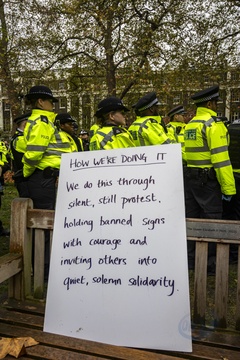 HOW WE'RE DOING IT
We do this through
silent, still protest.
holding banned signs
with courage and
inviting others into
quiet, solemn solidarity.